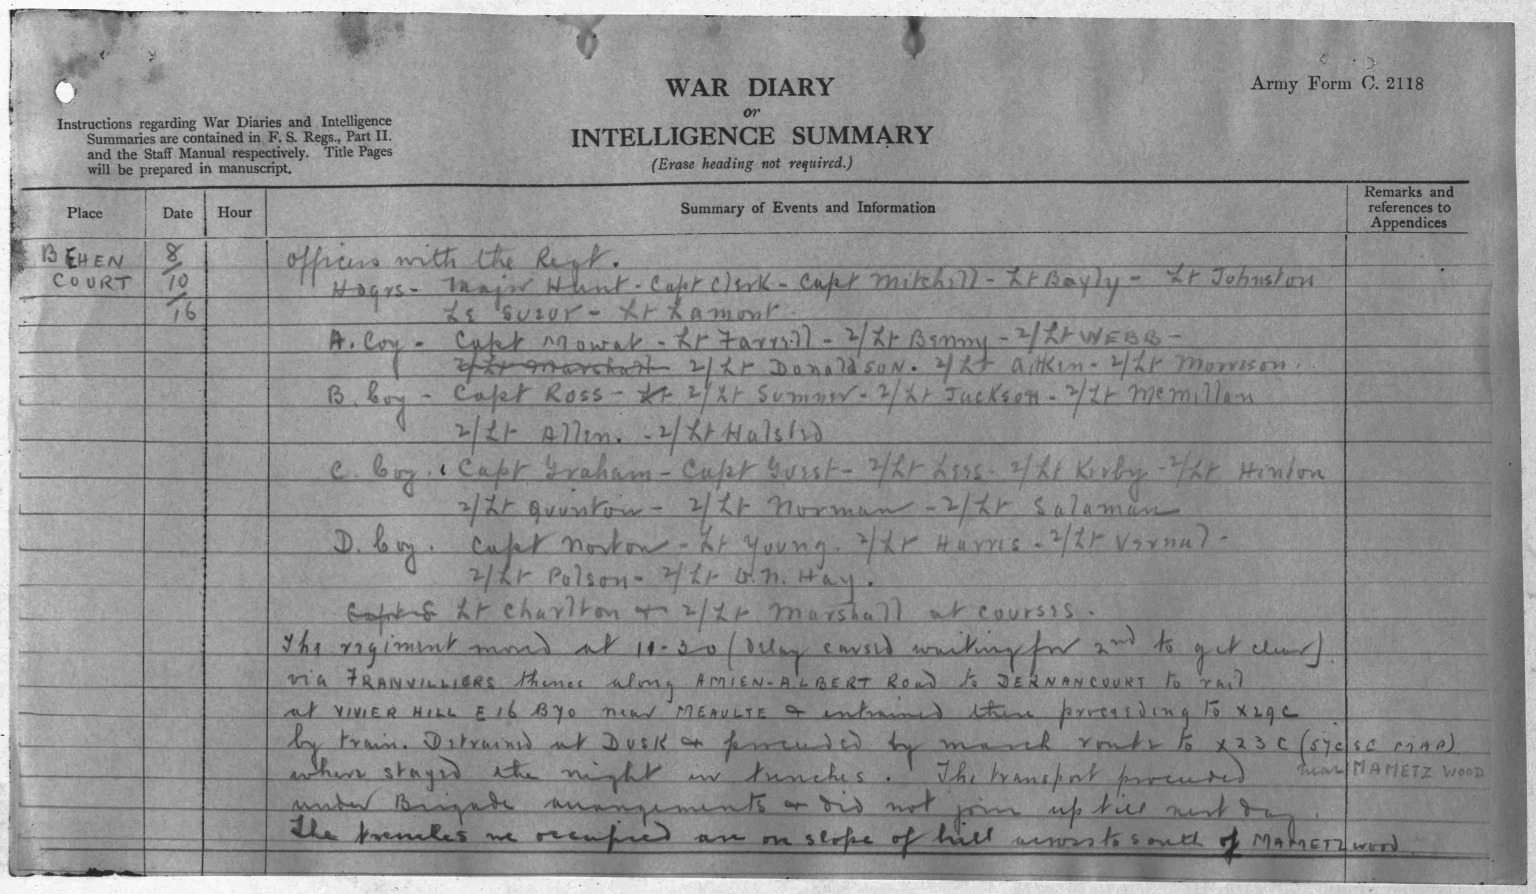 WAR DIARY
or
INTELLIGENCE SUMMARY
(Erase heading not required.)
Army Form C. 2118
Instructions regarding War Diaries and Intelligence
Summaries are contained in F. S. Regs., Part II.
and the Staff Manual respectively. Title Pages
will be prepared in manuscript.
Place
Date
Hour
Summary of Events and Information
Remarks and
references to
Appendices
BEHEN
COURT
8/10/16
Officers with the Regt.
Hdqrs - Major Hunt - Capt Clerk - Capt Mitchell - Lt Bayly - Lt Johnston
Le Sueur - Lt Lamont
A. Coy - Capt Mowat - Lt Farrell - 2/Lt Benny - 2/Lt WEBB -
2/Lt Marshall 2/Lt Donaldson. 2/Lt Aitken - 2/Lt Morrison.
B. Coy - Capt Ross - Lt 2/Lt Sumner - 2/Lt Jackson - 2/Lt McMillan
2/Lt Allen. - 2/Lt Halsted
C. Coy. Capt Graham - Capt Guest - 2/Lt Lees - 2/Lt Kirby - 2/Lt Hinton
2/Lt Quinton - 2/Lt Norman - 2/Lt Salaman
D. Coy. Capt Norton - Lt Young. 2/Lt Harris - 2/Lt Vernal -
2/Lt Polson - 2/Lt N. Hay.
Lt Charlton & 2/Lt Marshall at courses.
The regiment moved at 11-30 (Delay caused waiting for 2nd to get clear)
via FRANVILLIERS thence along AMIEN-ALBERT Road to DERNANCOURT to rail
at VIVIER HILL E16 B70 near MEAULTE & entrained there proceeding to X29C
by train. Detrained at DUSK & proceeded by march route to X23C (57C SC MAP)
near MAMETZ WOOD
where stayed the night in trenches. The transport proceeded
under Brigade arrangements & did not join up till next day.
The trenches we occupied are on slope of hill across to south of MAMETZ wood